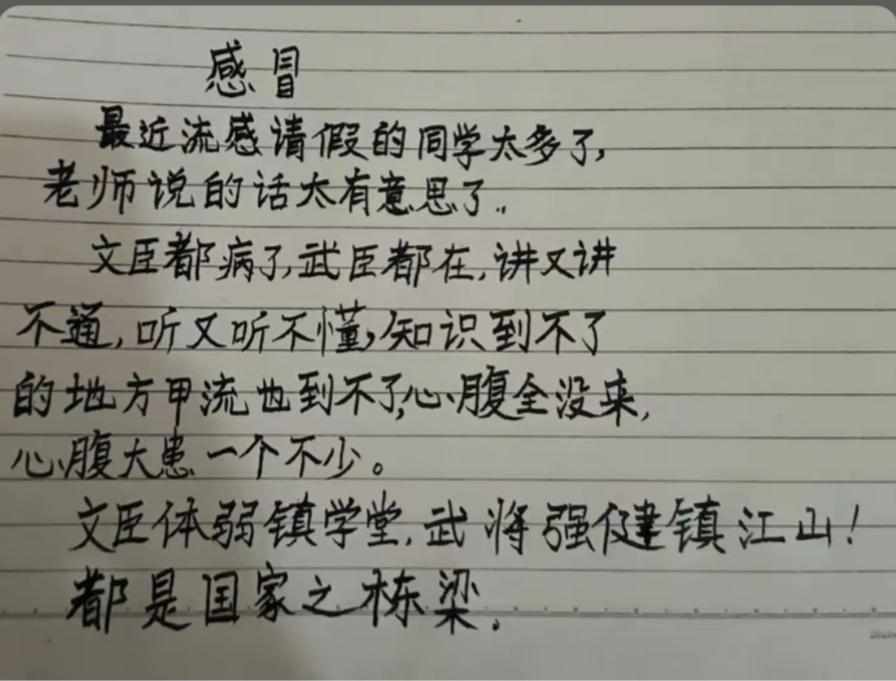 感冒
最近流感请假的同学太多了,
老师说的话太有意思了..
文臣都病了,武臣都在,讲又讲
不通,听又听不懂,知识到不了
的地方甲流也到不了,心腹全没来,
心腹大患一个不少。
文臣体弱镇学堂.武将强健镇江山!
都是国家之栋梁.